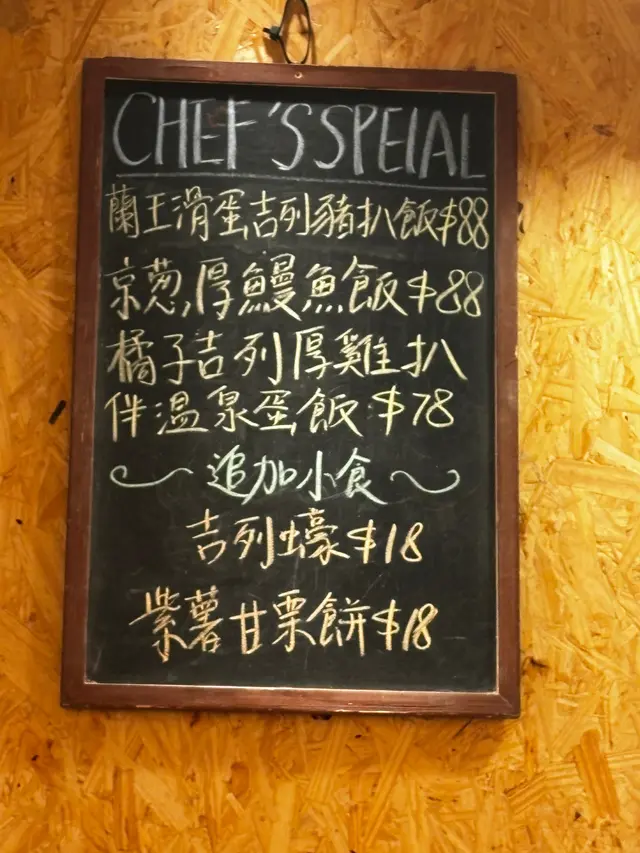 CHEF'S SPEIAL
蘭王滑蛋吉列豬扒飯$88
京葱厚鰻魚飯$88
橘子吉列厚雞扒
伴溫泉蛋飯 $78
～追加小食～
吉列蠔$18
紫薯甘栗餅$18